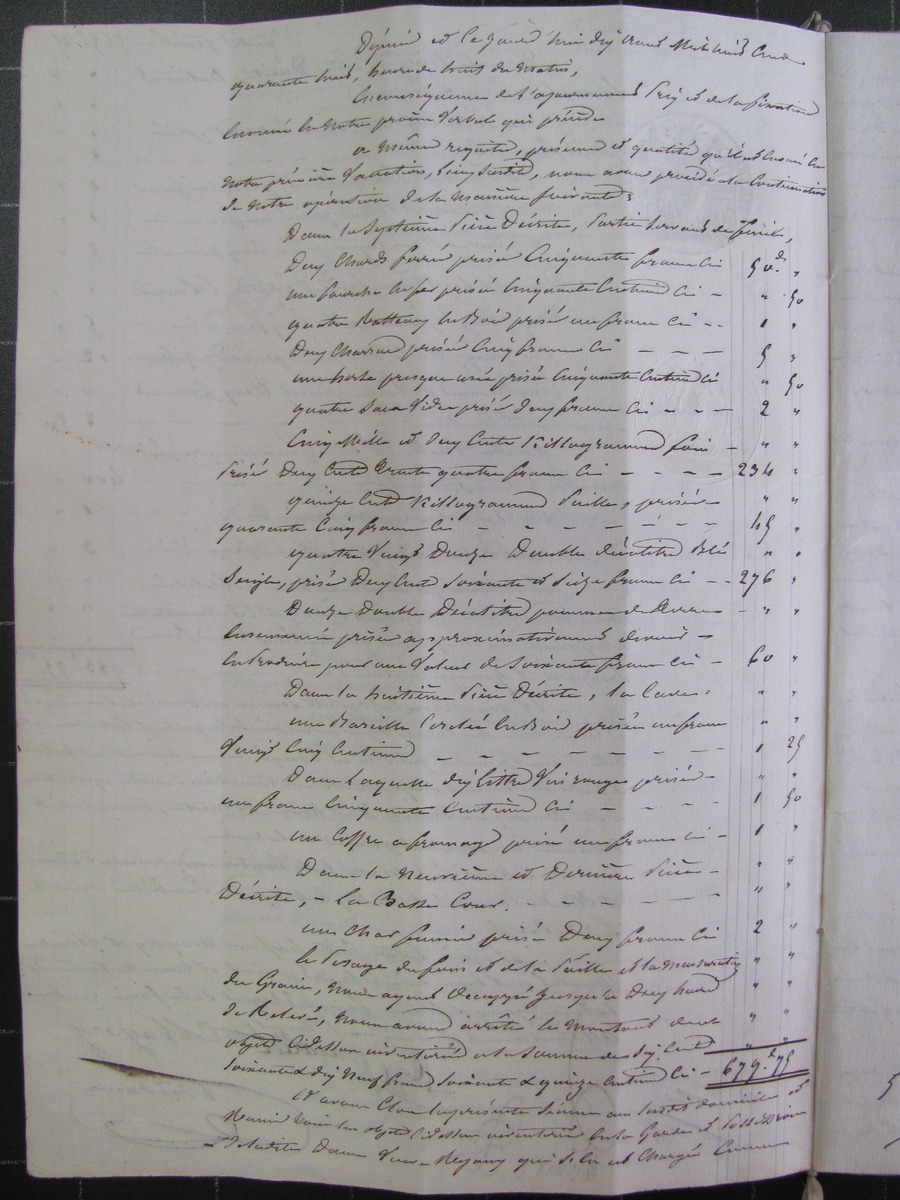 D'épuis et le Jeudi huit dix avril Mil huit Cent
quarante huit, heure de huit du Matin,
En conséquence de l'ajournement pris et de la fixation
énoncée en notre procès verbal qui précède
a même requête, présence et qualité qu'il est énoncé en
Notre première Vacation, sus daté, nous avons procédé a la Continuation
de Notre opération de la manière suivante :
Dans la septième pièce Décrite, partie servant de fenil,
Deux Chards ferrés prisés Cinquante francs Ci 50 "
une fourche en fer prisée Cinquante Centimes Ci - " 50
quatre Ratteaux en Bois prisés un franc Ci -- 1 "
Deux Charrues prisées Cinq francs Ci - - - 5 "
une herse presque usée prisée Cinquante Centimes Ci " 50
quatre Sacs Vides prisés deux francs Ci - - - 2 "
Cinq Mille et deux Cents Killogrammes foin - " "
prisés Deux Cents trente quatre francs Ci - - - - 234 "
quinze Cents Killogrammes paille, prisés - " "
quarante Cinq francs Ci - - - - - - - 45 "
quatre Vingt Douze Double décalitres Blé " "
Seigle, prisés Deux Cents Soixante et Seize francs Ci -- 276 "
Douze Double Décalitres pommes de terre - " "
prisées approximativement -
pour une Valeur de Soixante francs Ci - 60 "
Dans la huitième pièce Décrite, la Cave : " "
une Bareille Cerclée en Bois prisée un franc " "
Vingt Cinq Centimes - - - - - - - 1 25
Dans Laquelle dix Littres Vin rouge prisés - " "
un franc Cinquante Centimes Ci - - - - 1 50
un Coffre a fromage prisé un franc Ci - 1 "
Dans la Neuvième et Dernière pièce - " "
Décrite, - La Basse Cour. - - - - - " "
un Char fumier prisé Deux francs Ci 2 "
le pesage du foin et de la paille et la mensuration " "
du Grain, Nous ayant occuppé jusqu'a Deux heures " "
de Relevée, Nous avons arrêté le Montant des " "
objets Cidessus inventoriés a la Somme de Six Cents " "
soixante & dix Neuf francs Soixante & quinze Centimes Ci - 679.f 75
Et avons Clos la présente séance au susdit domicile et
Remis tous les objets Cidessus inventoriés en la Garde et possession
de ladite Dame Veuve Megany qui s'en est Chargée Comme